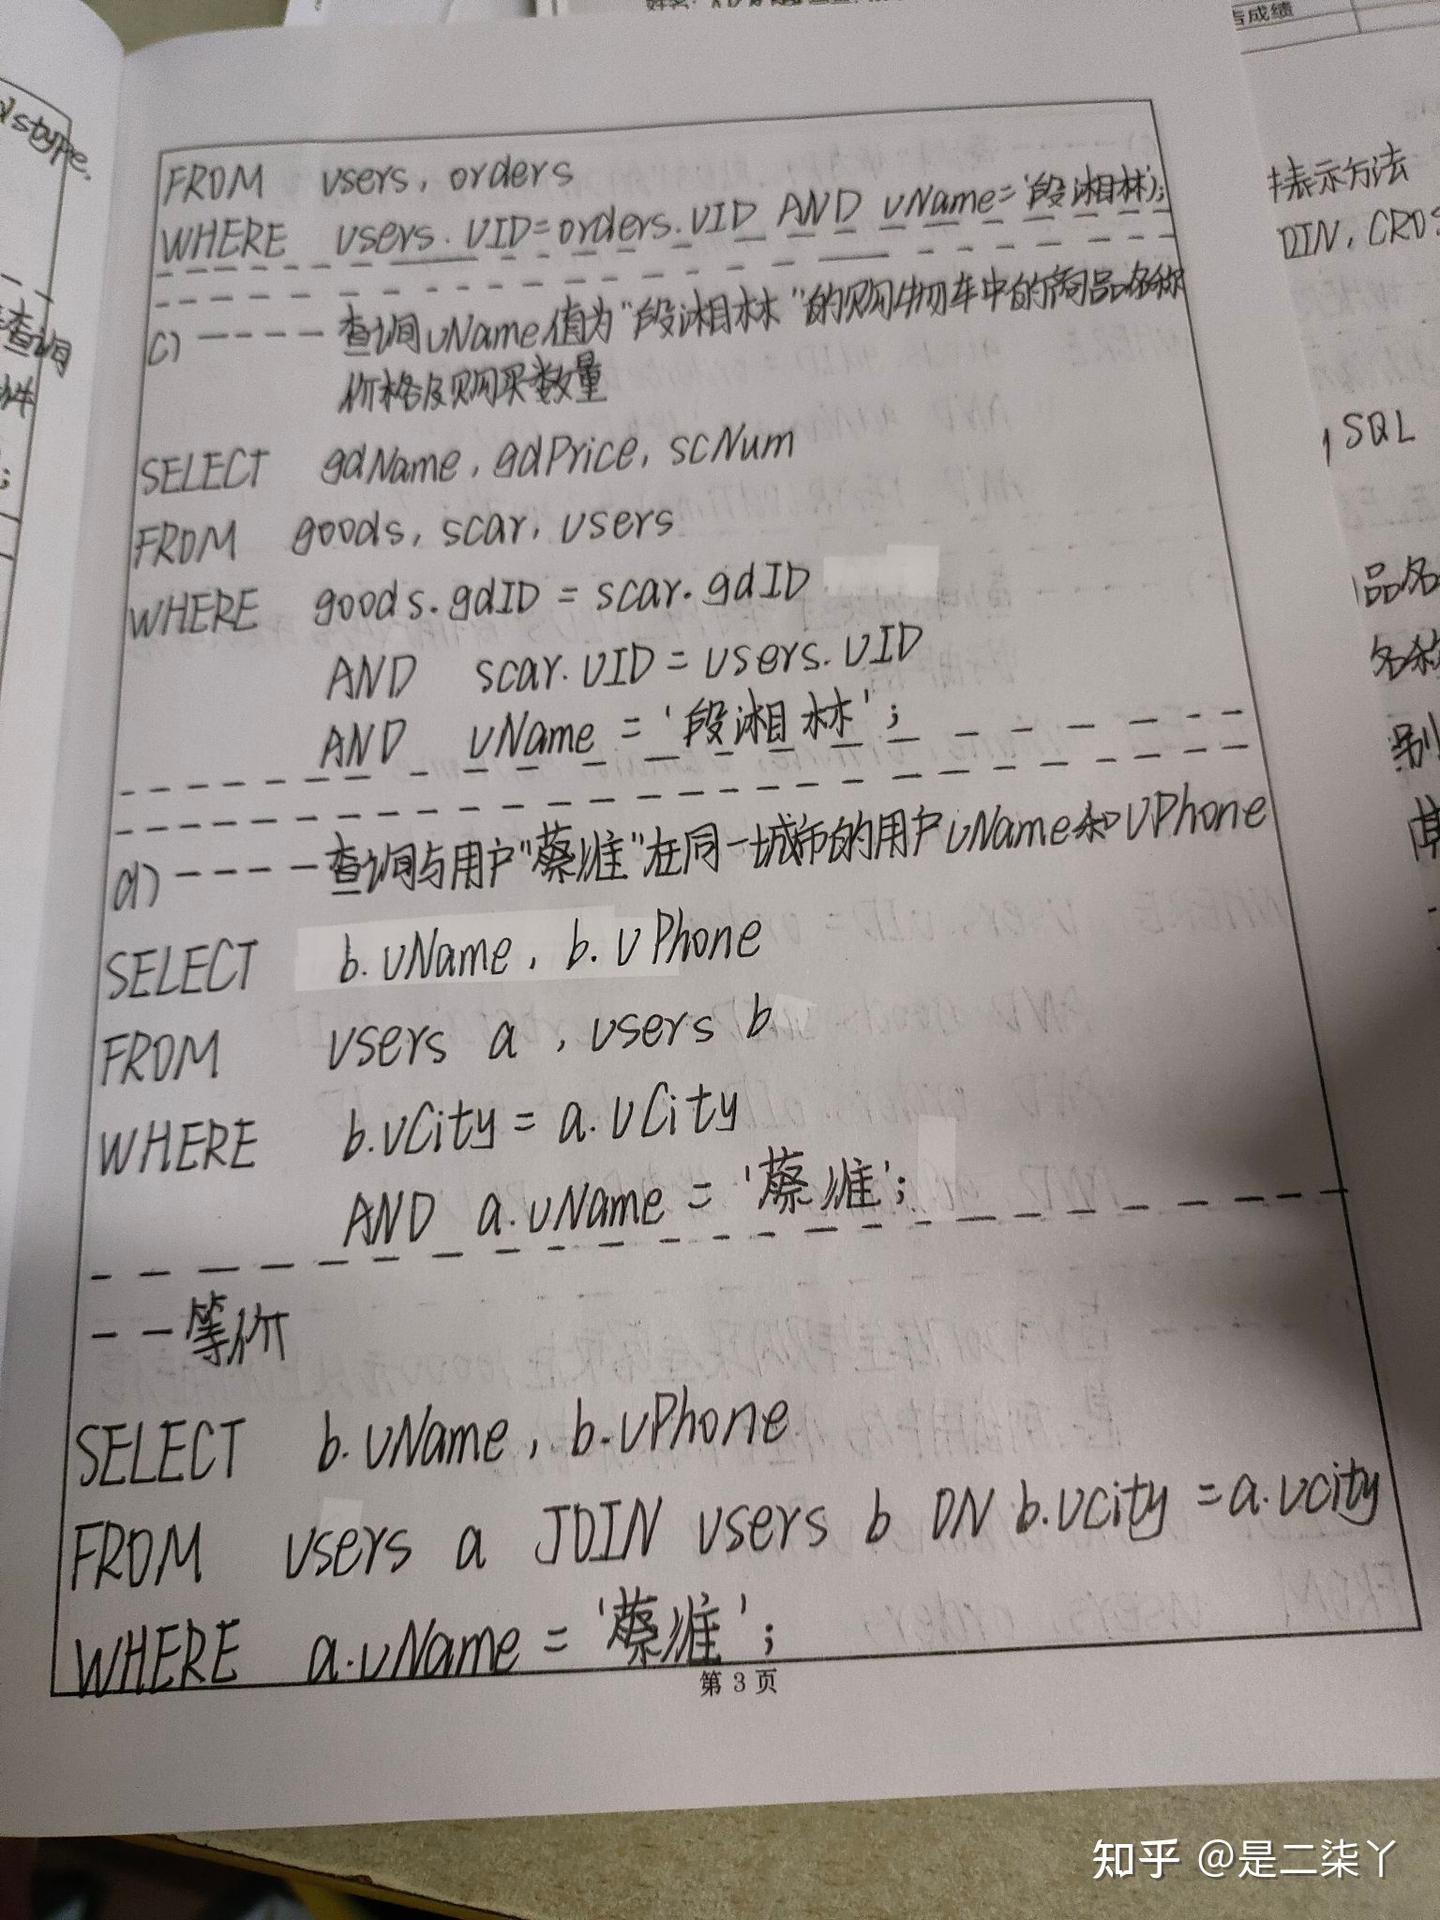 吉成绩
dstype.
FROM users, orders
WHERE users.UID=orders.UID AND uName='段湘林';
c) ---- 查询uName值为"段湘林"的购物车中的商品名称
价格及购买数量
SELECT gdName, gdPrice, scNum
FROM goods, scar, users
WHERE goods.gdID = scar.gdID
AND scar.UID = users.UID
AND uName = '段湘林';
d) ---- 查询与用户"蔡准"在同一城市的用户uName和UPhone
SELECT b.uName, b.uPhone
FROM users a, users b
WHERE b.uCity = a.uCity
AND a.uName = '蔡准';
--等价
SELECT b.uName, b.uPhone
FROM users a JOIN users b ON b.ucity = a.ucity
WHERE a.uName = '蔡准';
第 3 页
查询
件
表示方法
OIN, CROS
, SQL
品名
名称
别
知乎 @是二柒丫